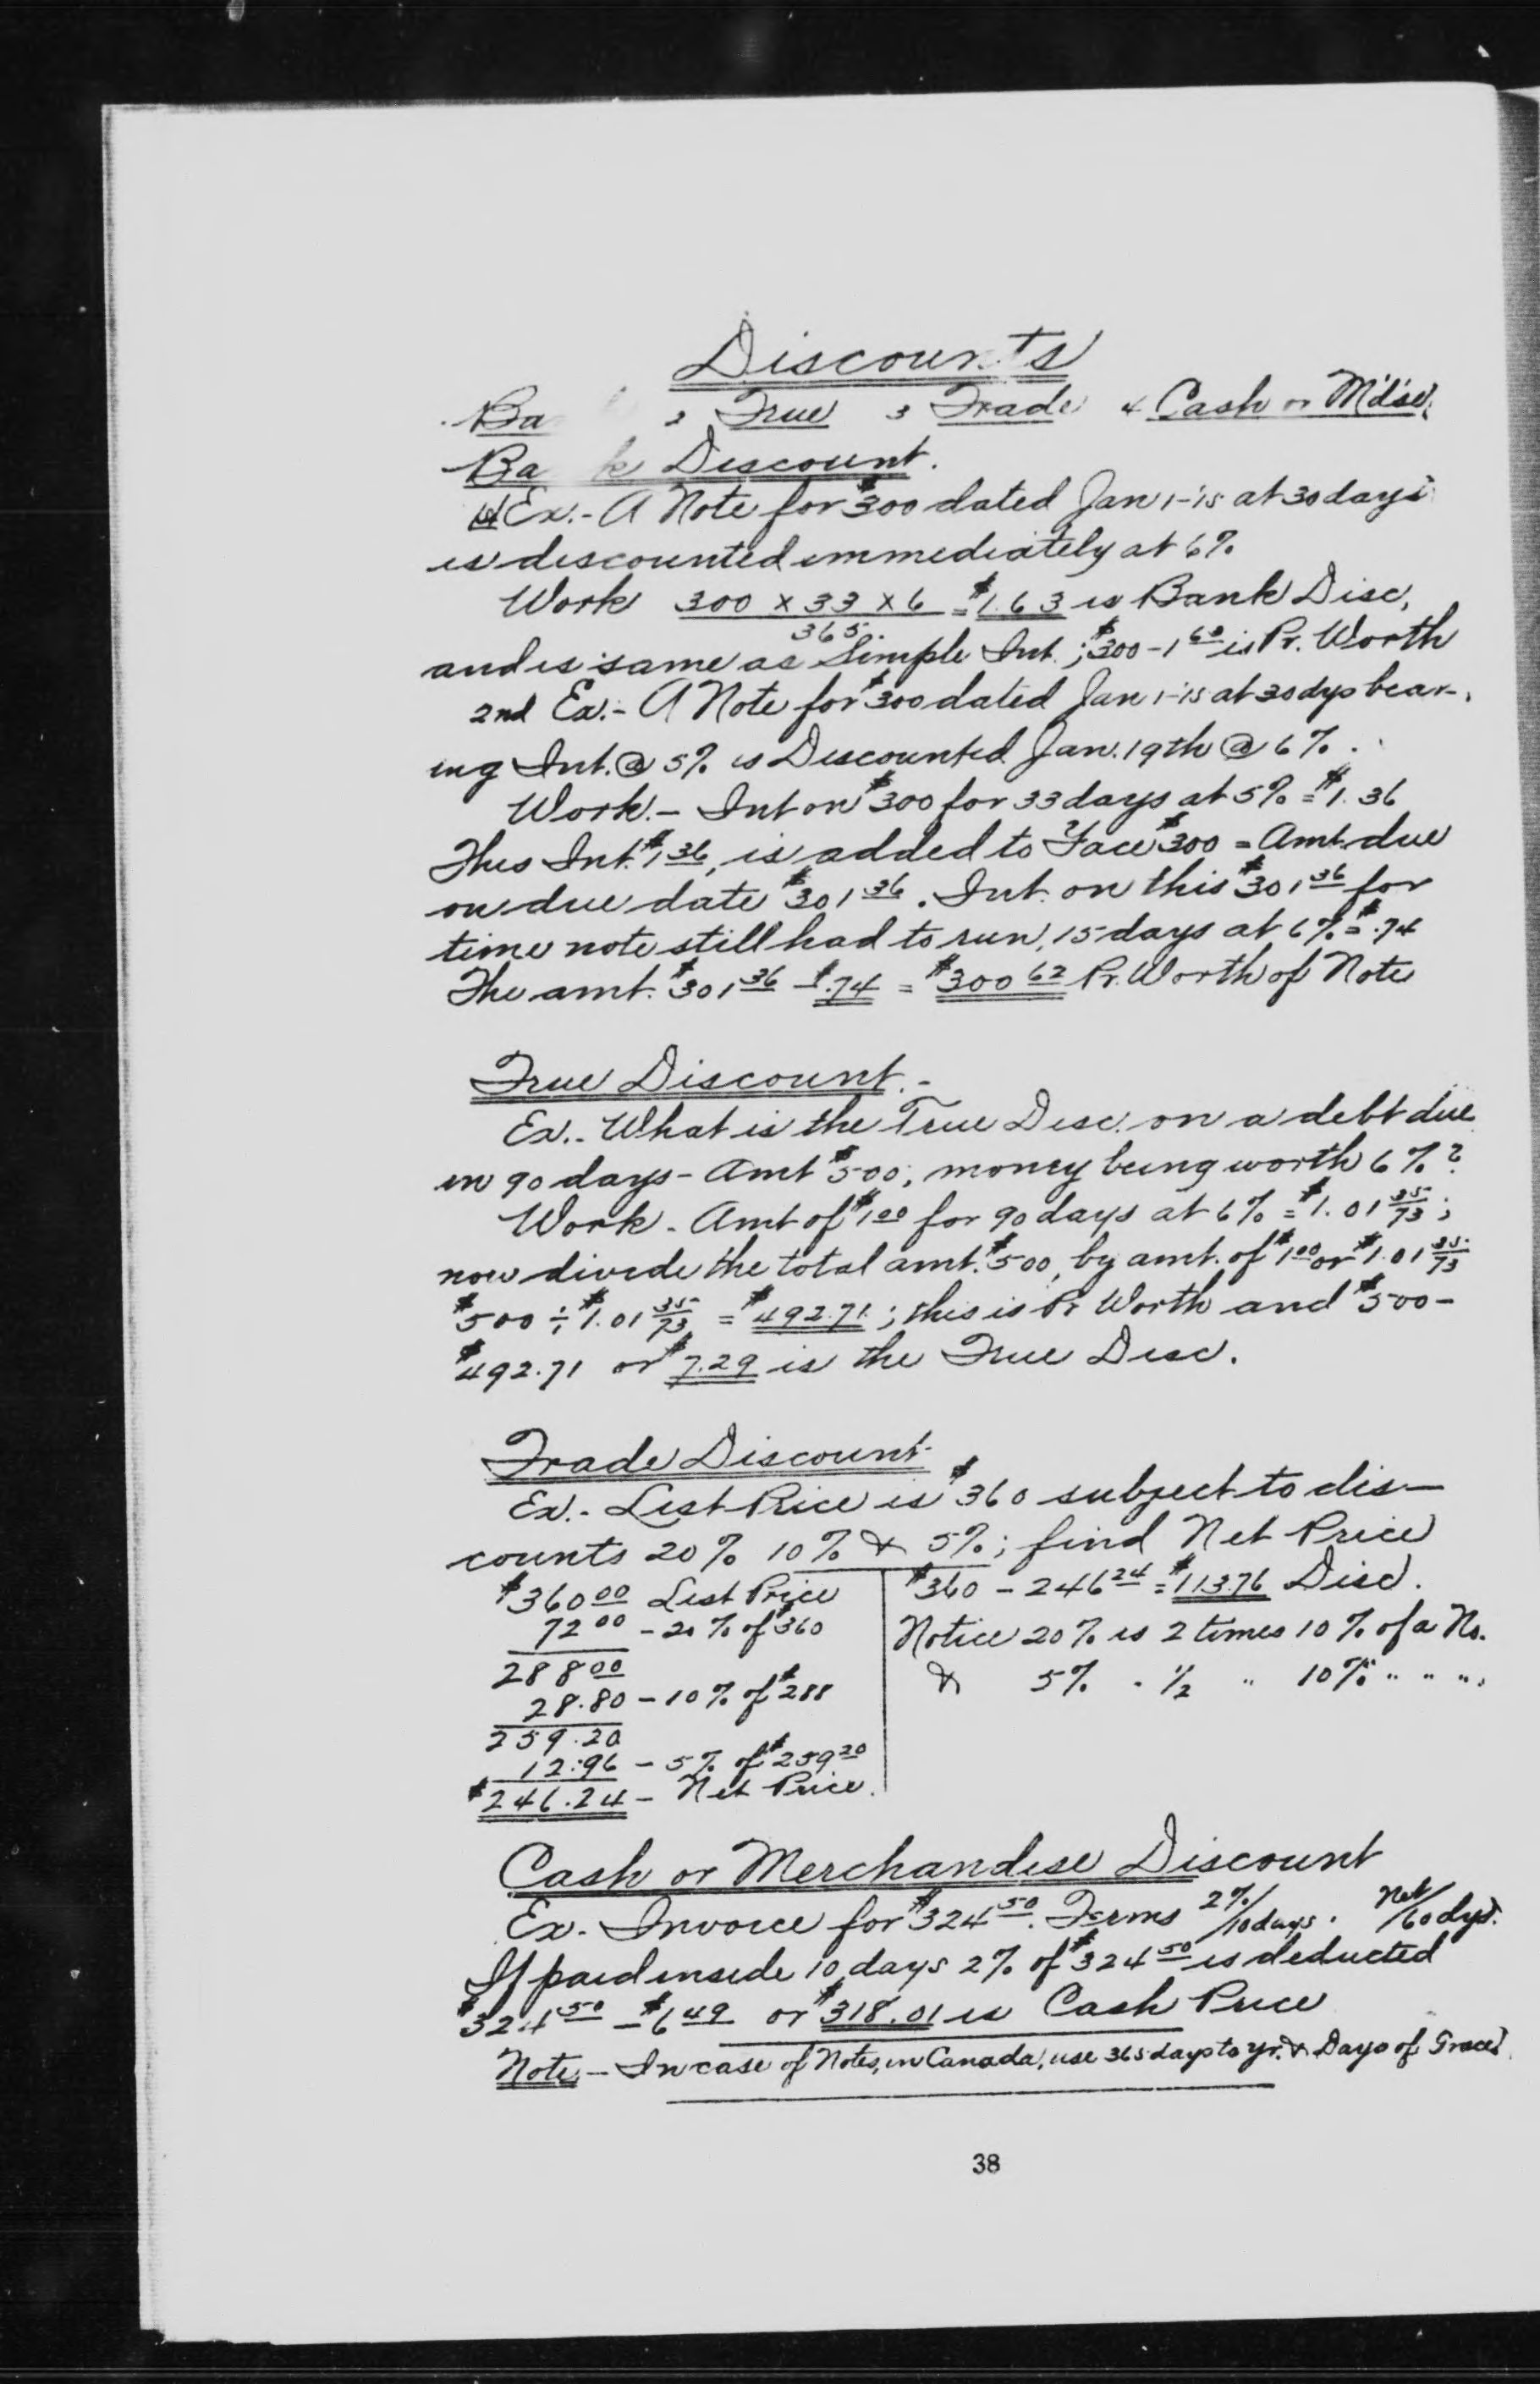 Discounts
Ba 2 True 3 Trade 4 Cash or M'd'se.
Ba k Discount.
1st Ex.- A Note for $300 dated Jan 1-'15 at 30 days
is discounted immediately at 6%
Work 300 x 33 x 6 = $1.63 is Bank Disc,
365.
and is same as Simple Int.; $300 - 1 63 is Pr. Worth
2nd Ex.- A Note for $300 dated Jan 1-'15 at 30 dys bear-
ing Int. @ 5% is Discounted Jan. 19th @ 6%.
Work.- Int on $300 for 33 days at 5% = $1.36
This Int. $1 36, is added to Face $300 = Amt. due
on due date $301 36. Int. on this $301 36 for
time note still had to run, 15 days at 6% = $.74
The amt. $301 36 - $.74 = $300 62 Pr. Worth of Note
True Discount.-
Ex.- What is the True Disc. on a debt due
in 90 days - Amt $500, money being worth 6%?
Work - Amt of $1 00 for 90 days at 6% = $1.01 35/73;
now divide the total amt. $500, by amt. of $1 00 or $1.01 35/73
$500 ÷ $1.01 35/73 = $492.71; this is Pr Worth and $500 -
$492.71 or $7.29 is the True Disc.
Trade Discount-
Ex.- List Price is $360 subject to dis-
counts 20% 10% & 5%; find Net Price
$360 00 List Price
72 00 - 20% of $360
288 00
28.80 - 10% of $288
259.20
12.96 - 5% of $259 20
$246.24 - Net Price.
$360 - 246 24 = $113.76 Disc.
Notice 20% is 2 times 10% of a No.
& 5% " 1/2 " 10% " " "
Cash or Merchandise Discount
Ex.- Invoice for $324 50. Terms 2%/10 days. Net/60 dys.
If paid inside 10 days 2% of $324 50 is deducted
$324 50 - $6 49 or $318.01 is Cash Price
Note - In case of Notes, in Canada, use 365 days to yr. & Days of Grace
38